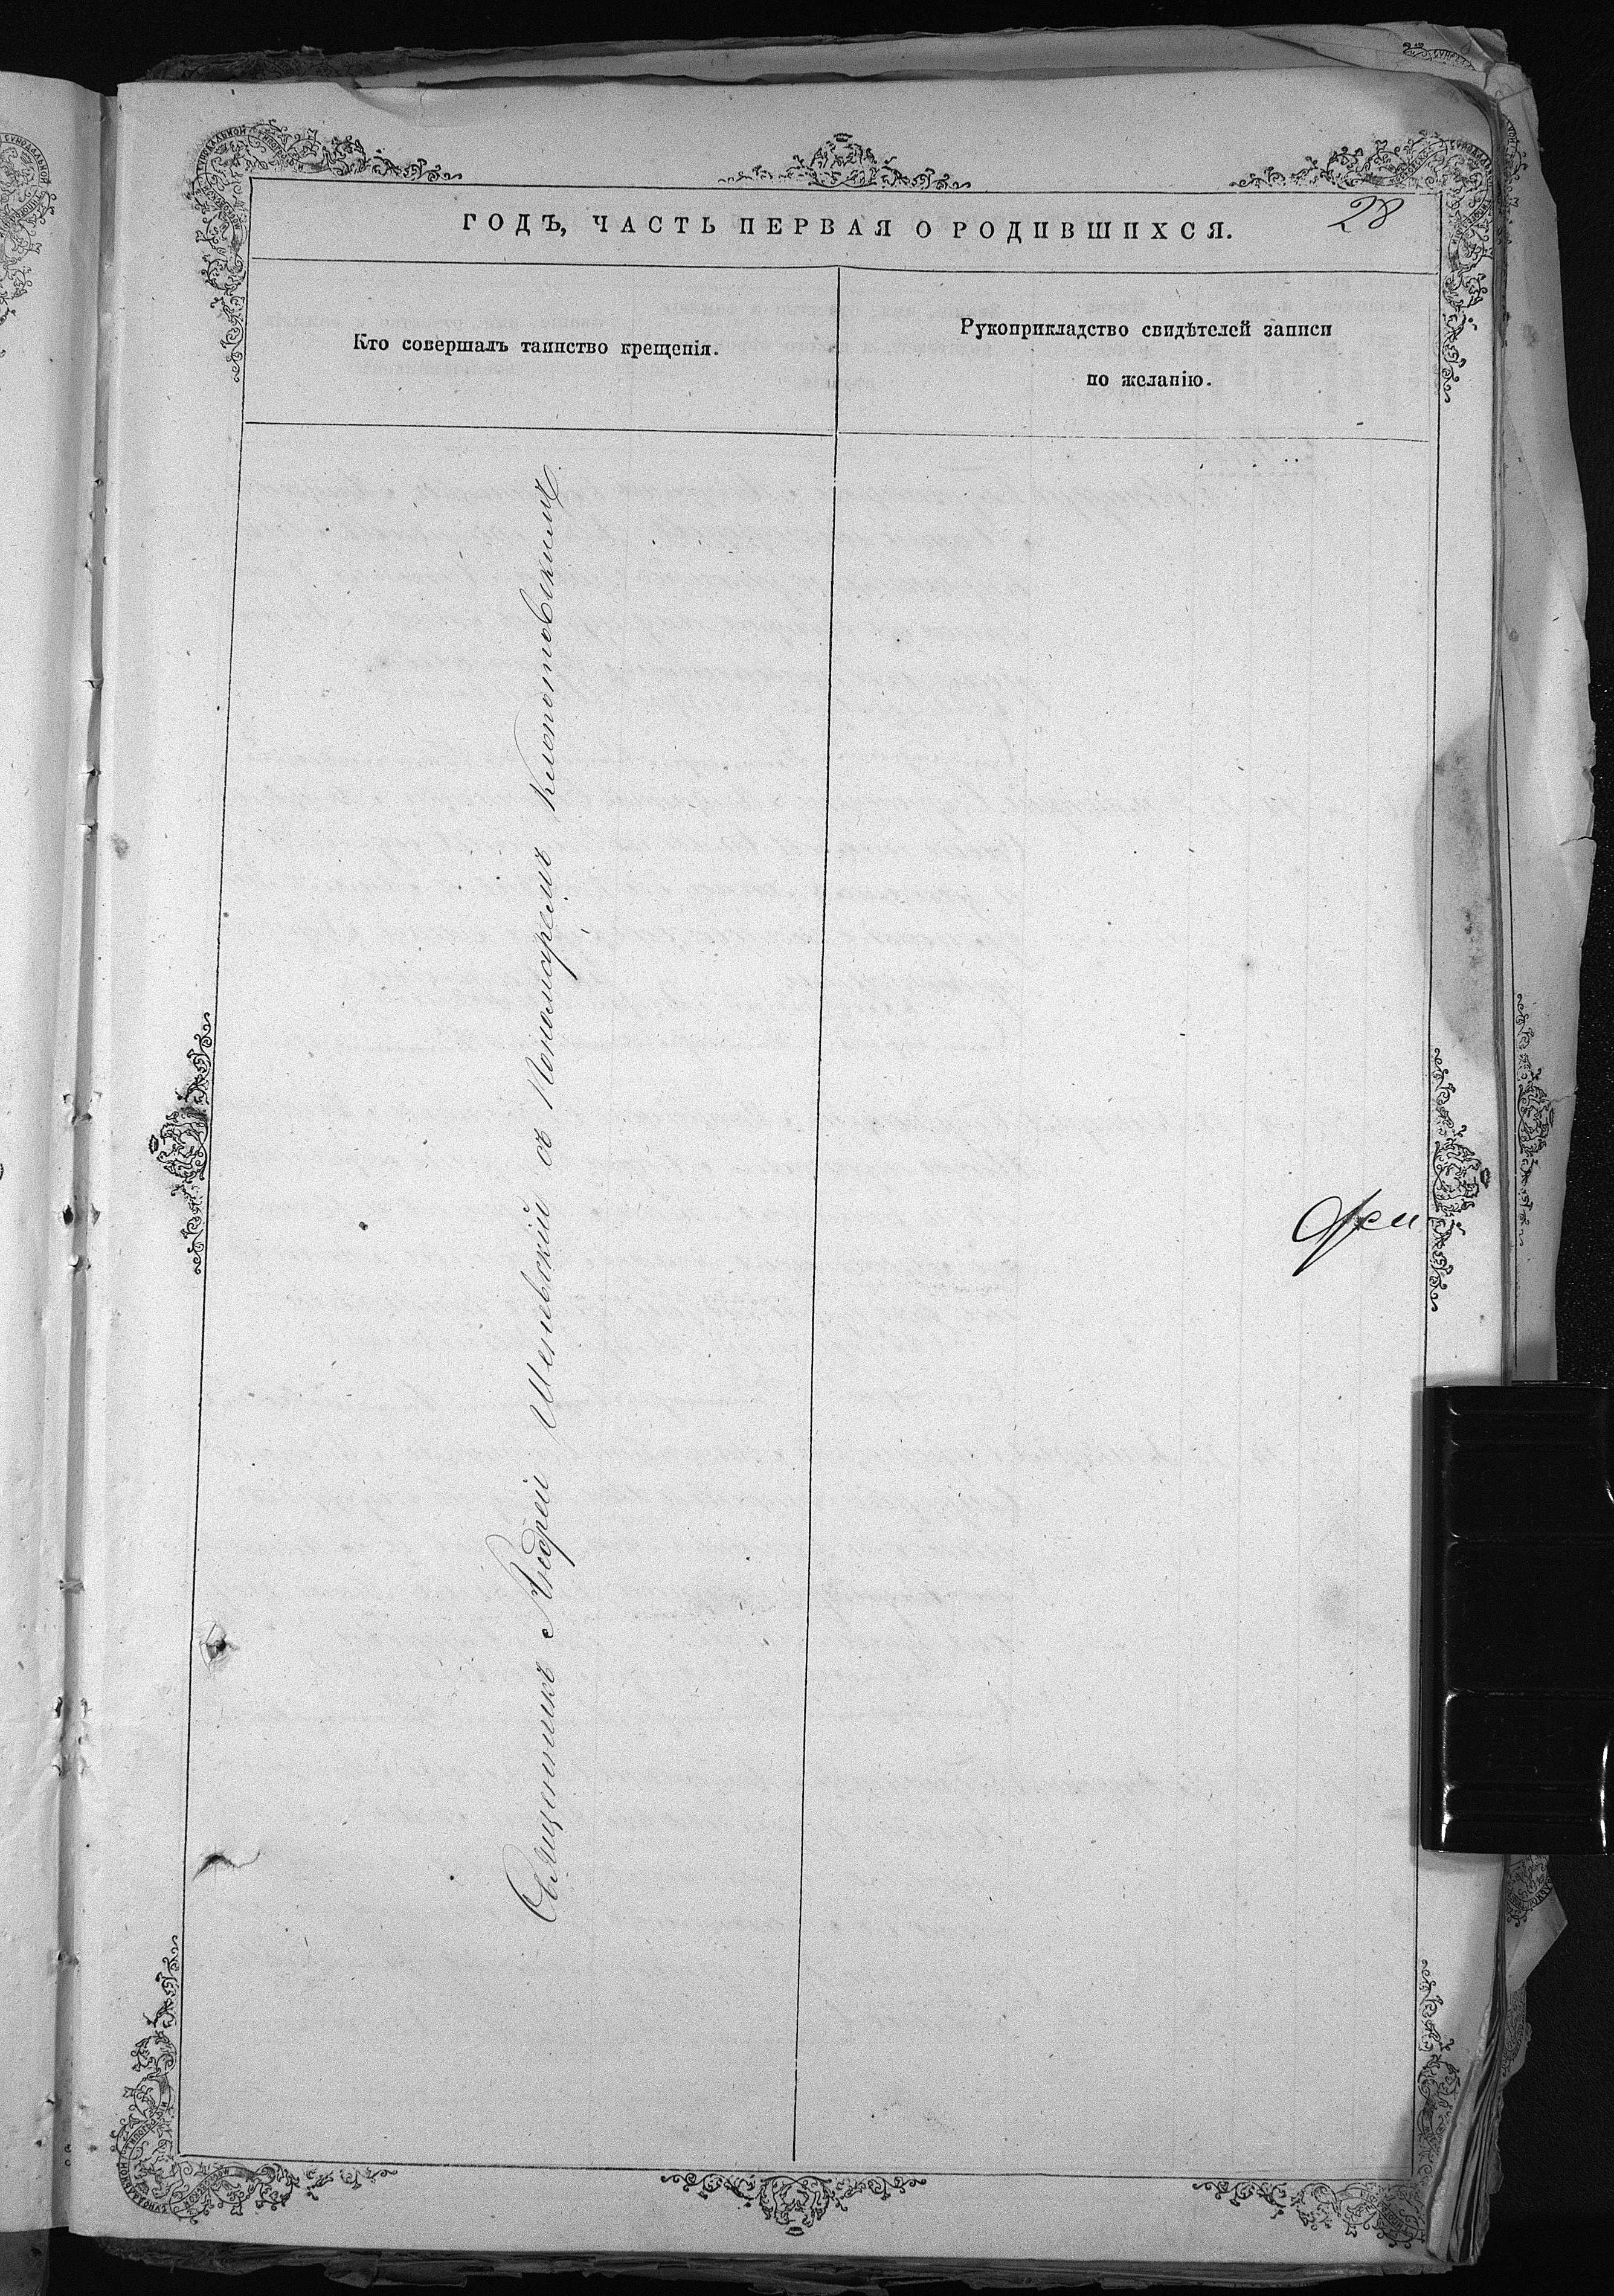 ГОДЪ, ЧАСТЬ ПЕРВАЯ О РОДИВШИХСЯ.
28
Кто совершалъ таинство крещенія.
Рукоприкладство свидѣтелей записи
по желанію.
Священникъ Андрей Шелевскій съ Пономаремъ Клопотовскимъ